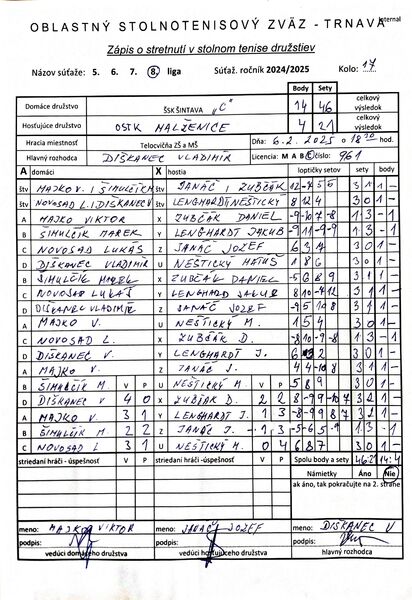 Internal
OBLASTNÝ STOLNOTENISOVÝ ZVÄZ - TRNAVA
Zápis o stretnutí v stolnom tenise družstiev
Názov súťaže: 5. 6. 7. 8. liga Súťaž. ročník 2024/2025 Kolo: 17
Body Sety
Domáce družstvo ŠSK ŠINTAVA "C" 14 46 celkový výsledok
Hosťujúce družstvo OSTK MALŽENICE 4 21 celkový výsledok
Hracia miestnosť Telocvičňa ZŠ a MŠ Dňa: 6.2.2025 o hod.
Hlavný rozhodca DIŠKANEC VLADIMÍR Licencia: M A B C číslo: 961
A domáci X hostia loptičky setov sety body
štv MAJKO V. I ŠIMULČÍK M. štv JANÁČ I ZUBČÁK 3 1 1 -
štv NOVOSAD L. I DIŠKANEC V štv LENGHARDT I NEŠTICKÝ 8 12 4 3 0 1 -
A MAJKO VIKTOR X ZUBČÁK DANIEL -9 -10 7 -8 1 3 - 1
B ŠIMULČÍK MAREK Y LENGHARDT JAKUB -9 11 -9 -9 1 3 - 1
C NOVOSAD LUKÁŠ Z JANÁČ JOZEF 6 3 4 3 0 1 -
D DIŠKANEC VLADIMÍR U NEŠTICKÝ MATÚŠ 1 8 6 3 0 1 -
B ŠIMULČÍK MAREK X ZUBČÁK DANIEL -5 6 8 9 3 1 1 -
C NOVOSAD LUKÁŠ Y LENGHARD JAKUB 8 10 -4 12 3 1 1 -
D DIŠKANEC VLADIMÍR Z JANÁČ JOZEF -9 5 10 8 3 1 1 -
A MAJKO V. U NEŠTICKÝ M. 1 5 4 3 0 1 -
C NOVOSAD L. X ZUBČÁK D. -8 10 -9 -8 1 3 - 1
D DIŠKANEC V. Y LENGHARDT J. 3 0 1 -
A MAJKO V. Z JANÁČ J. 4 4 -10 8 3 1 1 -
B ŠIMULČÍK M. V P U NEŠTICKÝ M. V P 5 8 9 3 0 1 -
D DIŠKANEC V 4 0 X ZUBČÁK D. 2 2 8 -9 9 -10 7 3 2 1 -
A MAJKO V. 3 1 Y LENGHARDT J. 1 3 -8 -9 9 8 7 3 2 1 -
B ŠIMULČÍK M. 2 2 Z JANÁČ J. 1 3 -5 -6 5 -9 1 3 - 1
C NOVOSAD L 3 1 U NEŠTICKÝ M. 0 4 6 8 7 3 0 1 -
striedaní hráči - úspešnosť V P striedaní hráči - úspešnosť V P Spolu body a sety 46:21 14:4
Námietky Áno Nie
ak áno, tak pokračujte na 2. strane
meno: MAJKO VIKTOR meno: JANÁČ JOZEF meno: DIŠKANEC V
podpis: podpis: podpis:
vedúci domáceho družstva vedúci hosťujúceho družstva hlavný rozhodca